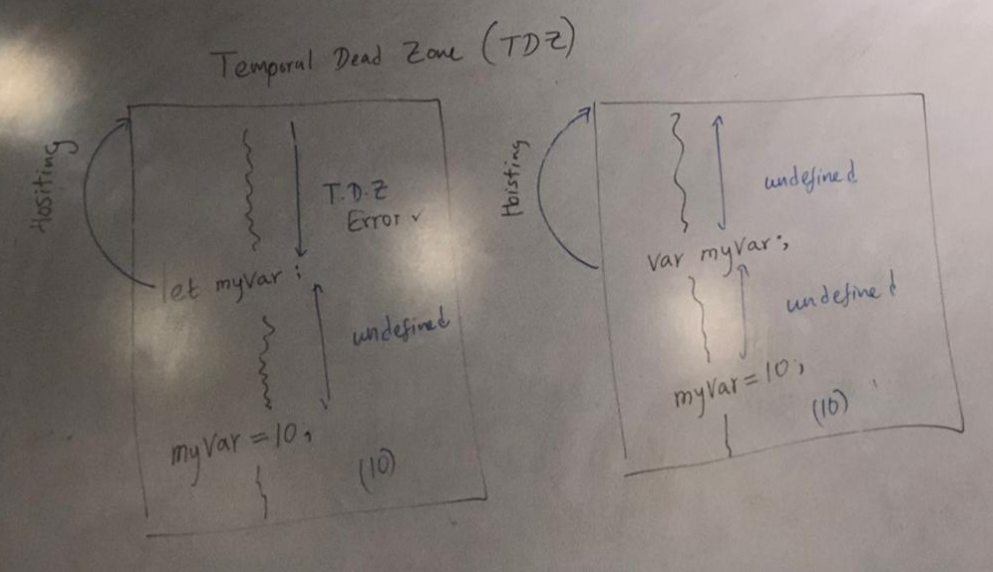 Temporal Dead Zone (TDZ)
Hositing
T.D.Z
Error ✓
let myvar ;
undefined
myvar = 10;
(10)
Hoisting
undefined
var myvar;
undefined
myvar = 10;
(10)